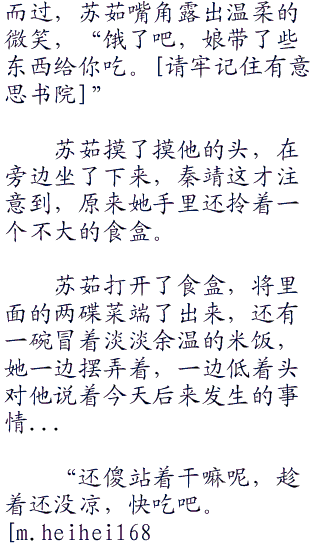 而过，苏茹嘴角露出温柔的
微笑，“饿了吧，娘带了些
东西给你吃。[请牢记住有意
思书院]”
苏茹摸了摸他的头，在
旁边坐了下来，秦靖这才注
意到，原来她手里还拎着一
个不大的食盒。
苏茹打开了食盒，将里
面的两碟菜端了出来，还有
一碗冒着淡淡余温的米饭，
她一边摆弄着，一边低着头
对他说着今天后来发生的事
情...
“还傻站着干嘛呢，趁
着还没凉，快吃吧。
[m.heihei168